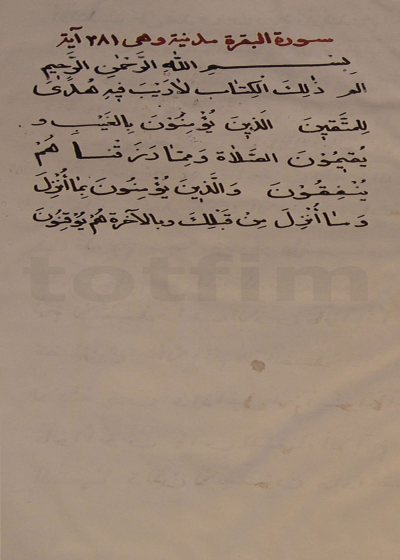 سورة البقرة مدنية وهى ٢٨١ آية
بسم الله الرَّحْمٰنِ الرَّحِيم
الم ذٰلِكَ الْكِتَابُ لاَرَيْبَ فِيهِ هُدًى
لِلمتَّقِينَ الَّذِينَ يُؤْمِنُونَ بِالغَيْبِ و
يُقِيمُونَ الصَّلاَةَ وَمِمَّا رَزَقْنَا هُمْ
يُنْفِقُونَ وَالَّذِينَ يُؤْمِنُونَ بِمَا أُنْزِلَ
وَمَا أُنْزِلَ مِنْ قَبْلِكَ وبالآخرة هُمْ يُوقِنُونَ
totfim